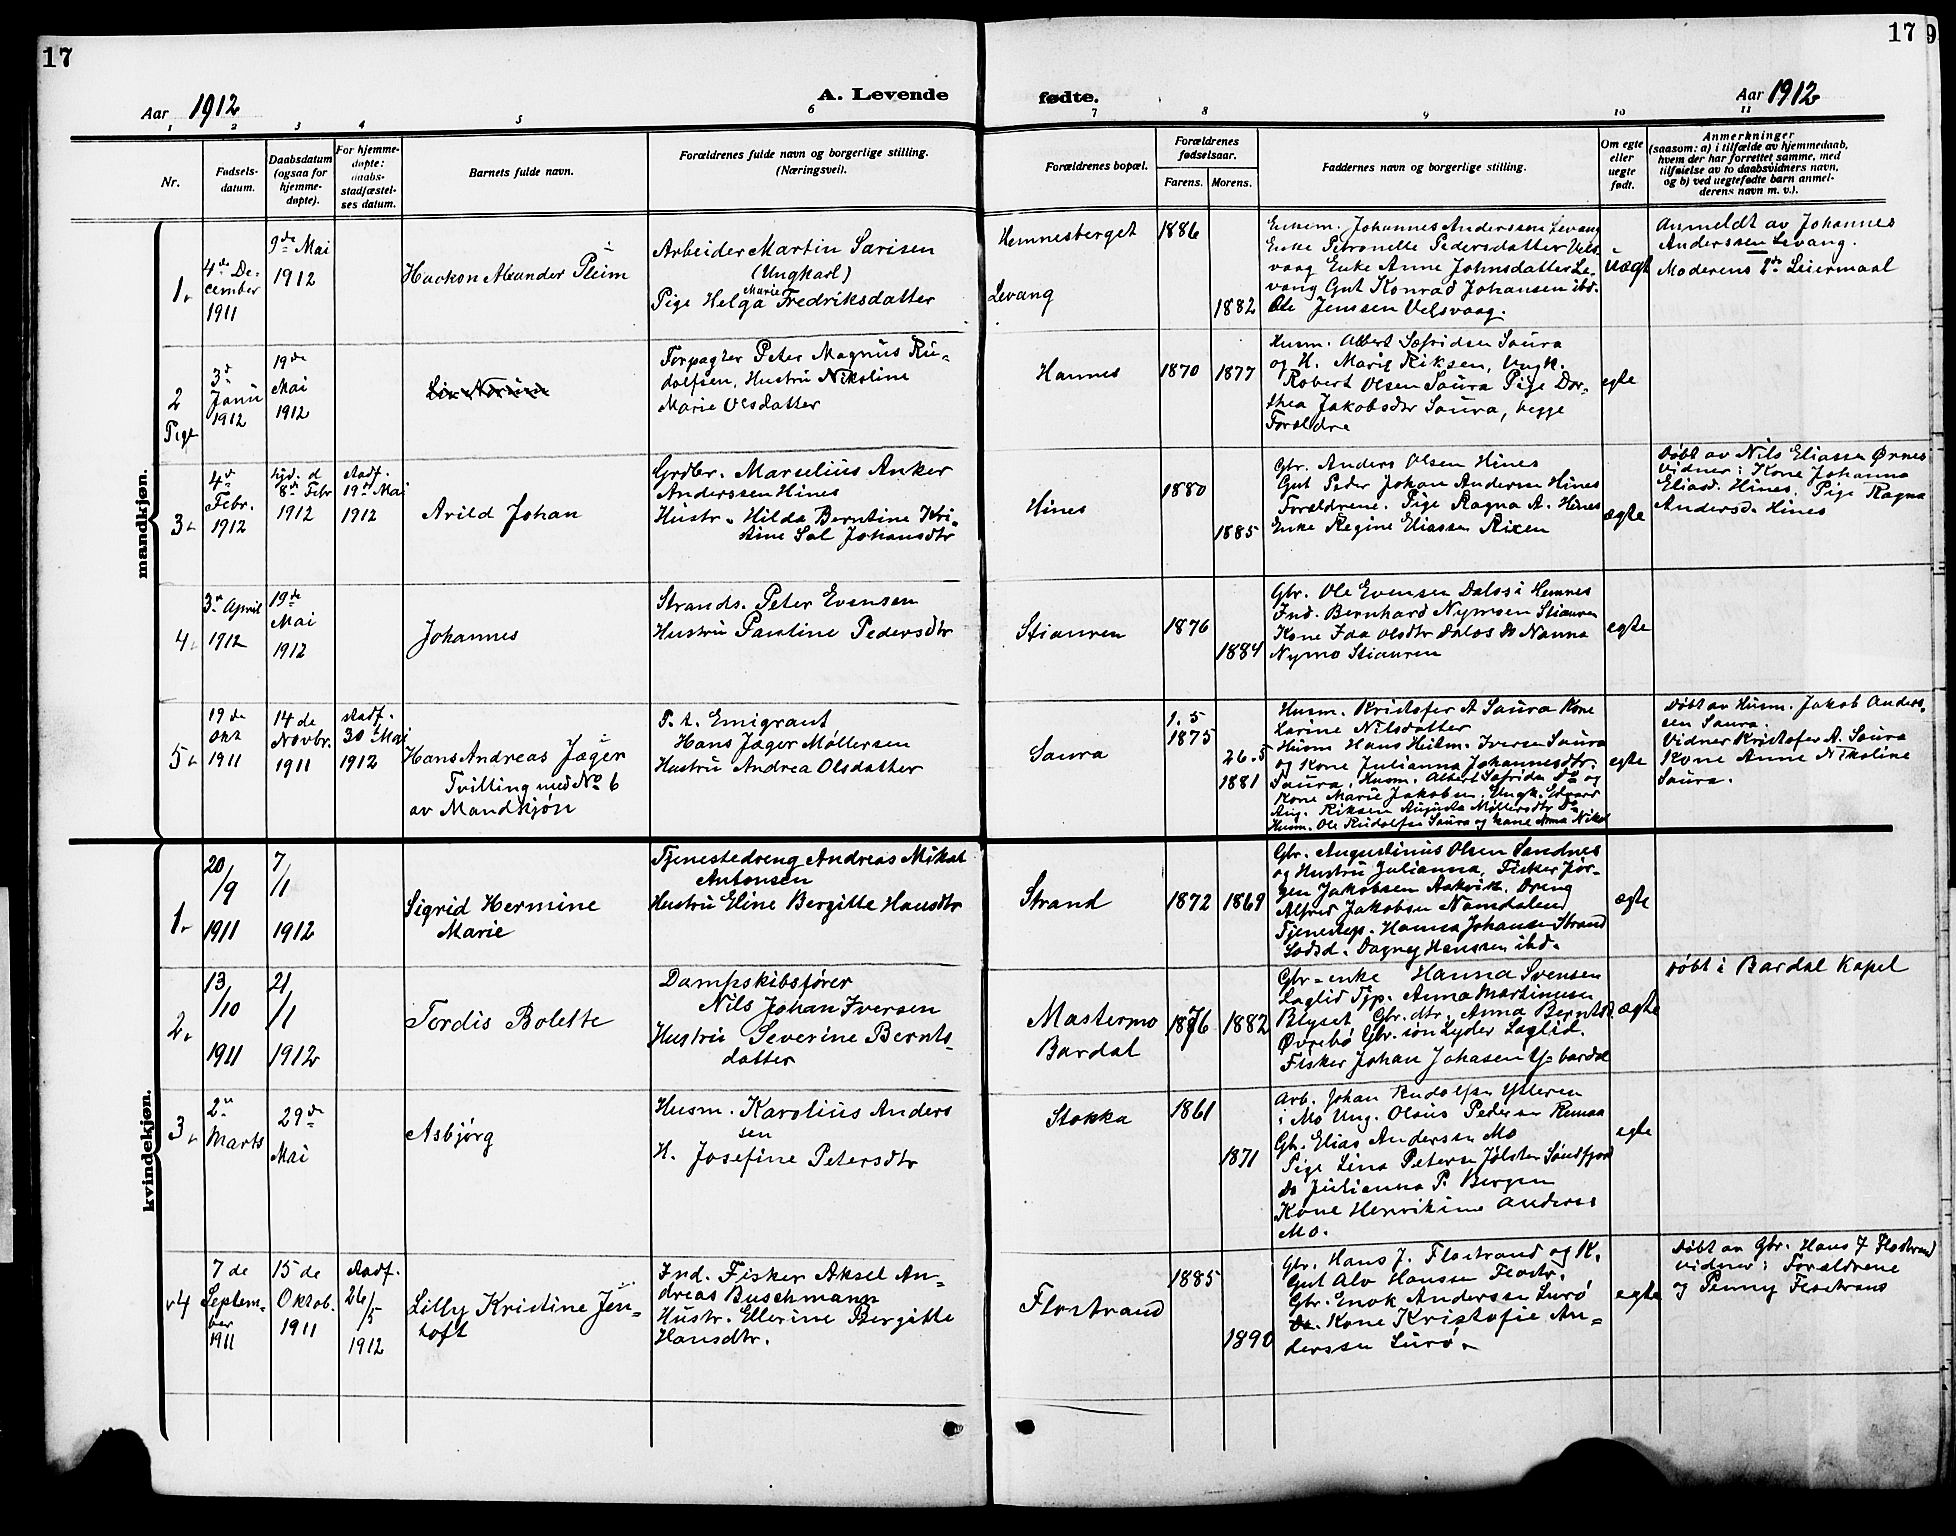 17
17
9
Aar 1912
A. Levende
fødte.
Aar 1912
1 2 3 4 5 6 7 8 9 10 11
Nr.
Fødsels-
datum.
Daabsdatum
(ogsaa for
hjemme-
døpte).
For hjemme-
døpte:
daabs-
stadfæstel-
ses datum.
Barnets fulde navn.
Forældrenes fulde navn og borgerlige stilling.
(Næringsvei).
Forældrenes bopæl.
Forældrenes
fødselsaar.
Farens. Morens.
Faddernes navn og borgerlige stilling.
Om egte
eller
uegte
født.
Anmerkninger
(saasom: a) i tilfælde av hjemmedaab,
hvem der har forrettet samme, med
tilføielse av to daabsvidners navn,
og b) ved uegtefødte barn anmel-
derens navn m. v.).
mandkjøn.
1.
4de De-
cember
1911
9de Mai
1912
Haakon Alexander Pleim
Arbeider Martin Sarisen
(Ungkarl)
Marie
Pige Helga Fredriksdatter
Hemnesberget
Levang
1886
1882
Enkem. Johannes Anderssen Levang
Enke Petronelle Pedersdatter Vels-
vaag Enke Anne Johnsdatter Le-
vang Gut Konrad Johansen ibd.
Ole Jenssen Velsvaag.
uægt
Anmeldt av Johannes
Anderssen Levang.
Moderens 2de Leiermaal
2
Pige
3d
Janu
1912
19de
Mai
1912
Forpagter Peter Magnus Ru-
dolfsen, Hustru Nikoline
Marie Olsdatter
Hannes
1870 1877
Husm. Albert Sefridsen Saura
og H. Marie Riksen, Ungk.
Robert Olsen Saura Pige Dor-
thea Jakobsdtr Saura, begge
Forældre
egte
3.
4d
Febr.
1912
hjd. d
8de Febr
1912
stadf.
19de Mai
1912
Arild Johan
Grdbr. Marselius Anker
Anderssen Hines
Hustr. Hilda Berntine Kri-
stine Sol Johansdtr
Hines
1880
1885
Gbr. Anders Olsen Hines
Gut Peder Johan Andersen Hines
Forældrene. Pige Ragna A. Hines
Enke Regine Eliassen Risen
ægte
Døbt av Nils Eliassen Ørnes
Vidner: Kone Johanna
Eliasd. Hines. Pige Ragna
Andersd. Hines
4.
3die April
1912
19de
Mai
1912
Johannes
Strands. Peter Evensen
Hustru Pauline Pedersdtr
Stiauren
1876
1884
Gbr. Ole Evensen Dalos i Hemnes
Ind. Bernhard Nymoen Stiauren
Kone Ida Olsdtr Dalos Do Nanna
Nymo Stiauren
egte
5.
19 de
Okt
1911
14 de
Novbr.
1911
stadf.
30te Mai
1912
Hans Andreas Jæger
Tvilling med No 6
av Mandkjøn
P. t. Emigrant
Hans Jæger Møllersen
Hustru Andrea Olsdatter
Saura
1. 5
1875
26. 5
1881
Husm. Kristofer A Saura Kone
Larine Nilsdatter
Husm Hans Heilm. Iversen Saura
og Kone Julianna Johannesdtr.
Saura, Husm. Albert Sefridsen Do og
Kone Marie Jakobsen, Ungk. Edvard
Aug. Riksen Augusta Møllersdtr Do
Husm. Ole Rudolfsen Saura og kone Anna Nikol
egte
Døbt av Husm. Jakob Anders-
sen Saura.
Vidner Kristofer A. Saura
Kone Anne Nikoline
Saura.
kvindekjøn.
1.
20/9
1911
7/1
1912
Sigrid Hermine
Marie
Tjenestedreng Andreas Mikal
Antonsen
Hustru Eline Bergitte Hansdtr
Strand
1872 1869
Gbr. Augustinus Olsen Sandnes
og Hustru Julianna, Fisker Jør-
gen Jakobsen Aakvik. Dreng
Alfred Jakobsen Namdalen
Tjenestep. Hanna Johansen Strand
Lodsd. Dagney Hanssen ibd.
ægte
2.
13/10
1911
21/1
1912
Tordis Bolette
Dampskibsfører
Nils Johan Iversen
Hustru Severine Bernts-
datter
Mastermo
Bardal
1876 1882
Gbr-enke Hanna Svensen
Laglid Tjp. Anna Martinusen
Blyset, Gbr. dtr. Anna Berntsd.
Øvrebø Gbr. søn Lyder Laglid.
Fisker Johan Johasen Y- bardal
ægte
Døbt i Bardal Kapel
3.
2den
Marts
29de
Mai
Asbjørg
Husm. Karolius Anders
sen
H. Josefine Petersdtr
Stokka
1861
1871
Arb. Johan Rudolfsen Ytteren
i Mo Ung. Olaus Pedersen Remaa
Gbr. Elias Andersen Mo
Pige Lina Petersen Jølster Søndfjord
do Julianna P. Bergen
Kone Henrikine Anderss
Mo.
egte
4
7 de
Septem-
ber
1911
15 de
Oktob.
1911
stadf.
26/5
1912
Lilly Kristine Jen-
toft
Ind. Fisker Aksel An-
dreas Buschmann
Hustr. Ellerine Bergitte
Hansdtr.
Flostrand
1885
1890
Gbr. Hans J. Flostrand og K.
Gut Alv Hanssen Flostr.
Gbr. Enok Anderssen Lurø
Do. Kone Kristofie An-
derssen Lurø.
egte
Døbt av Gbr. Hans J Flostrand
Vidner: Forældrene
og Penny Flostrand